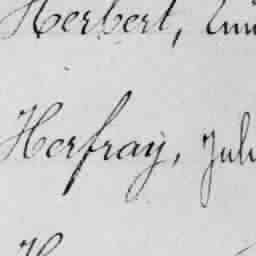 Herbert,
Herfray, Juli